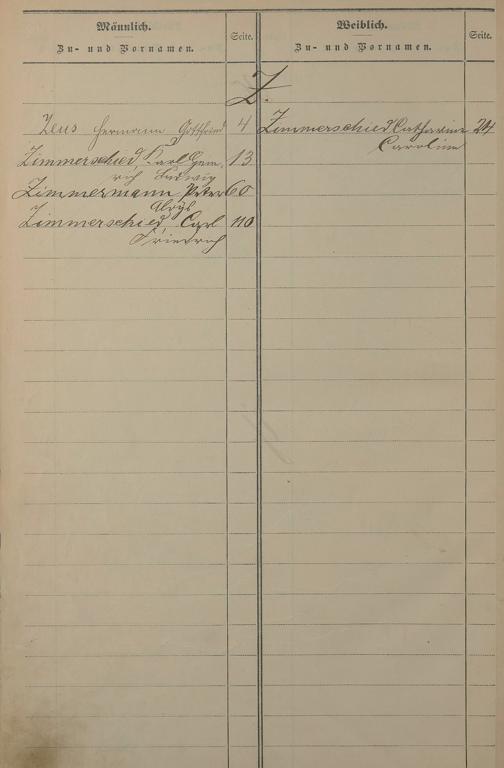 Männlich.
Zu- und Vornamen.
Seite.
Weiblich.
Zu- und Vornamen.
Seite.
Z.
Zeus Hermann Gottfried 4
Zimmerschied, Karl Hein,
rich Ludwig 13
Zimmermann, Peter 60
Aloys
Zimmerschied, Carl 110
Friedrich
Zimmerschied Catharine 24
Caroline